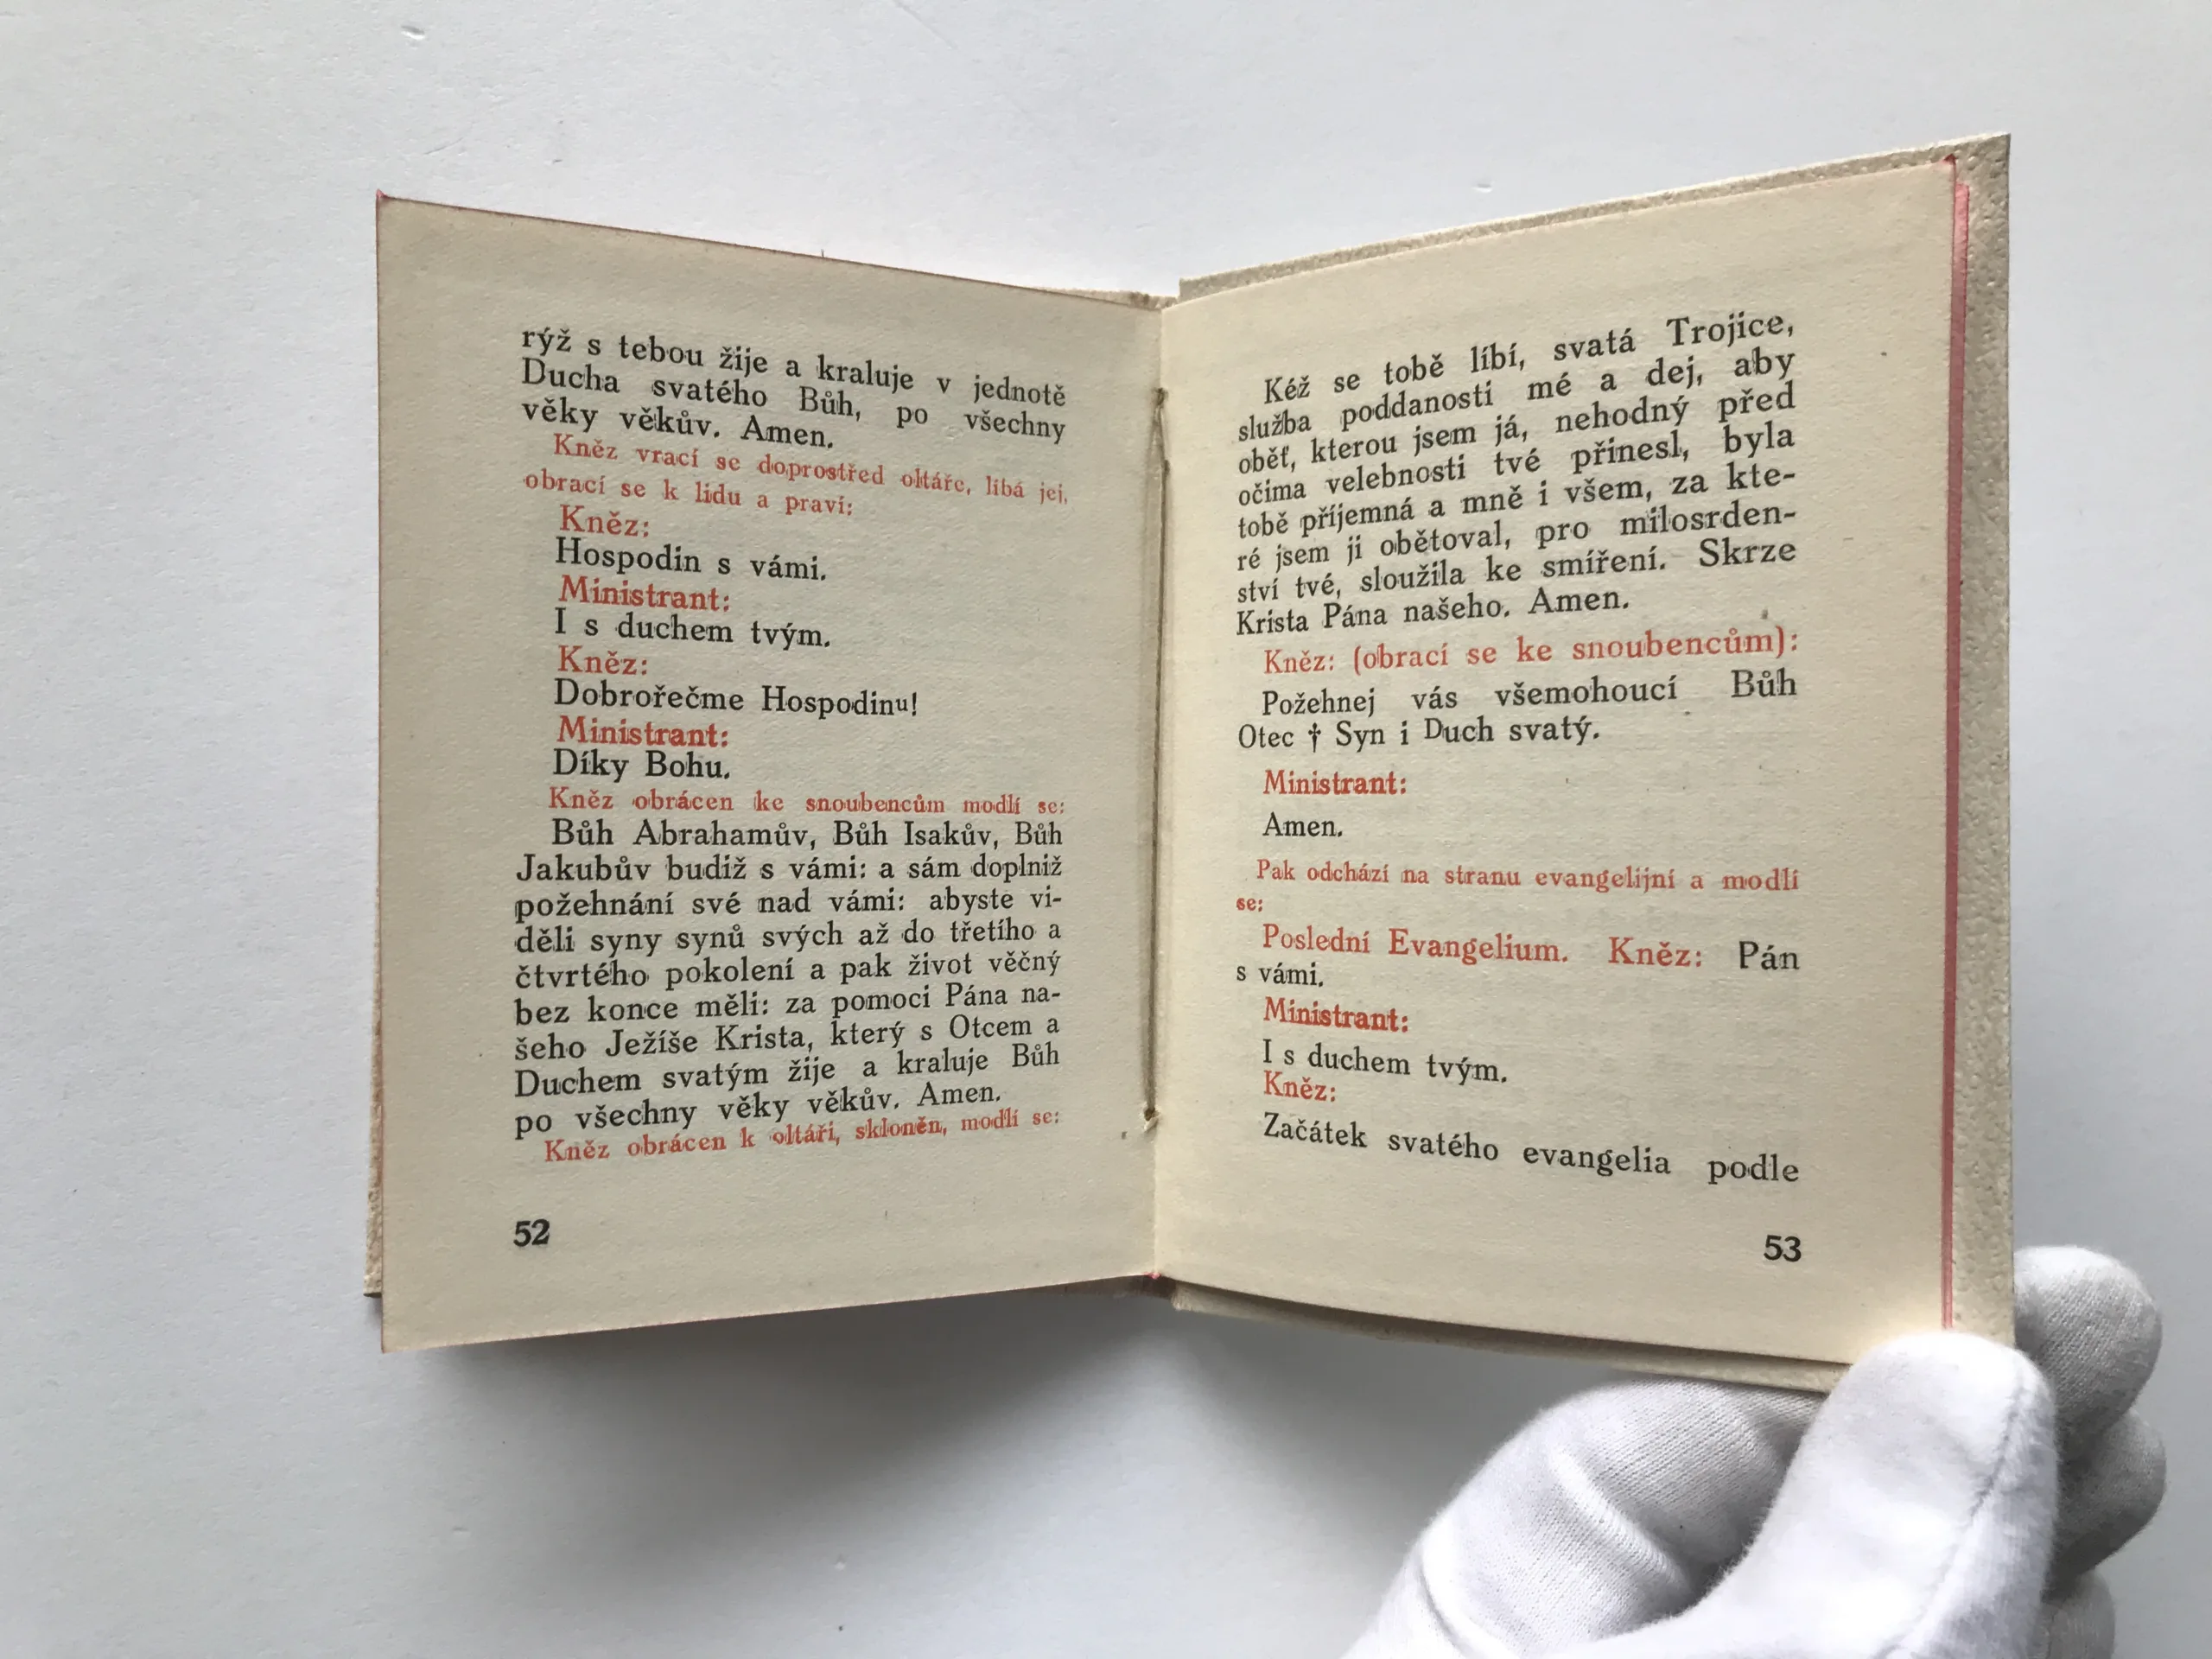 rýž s tebou žije a kraluje v jednotě
Ducha svatého Bůh, po všechny
věky věkův. Amen.
Kněz vrací se doprostřed oltáře, líbá jej,
obrací se k lidu a praví:
Kněz:
Hospodin s vámi.
Ministrant:
I s duchem tvým.
Kněz:
Dobrořečme Hospodinu!
Ministrant:
Díky Bohu.
Kněz obrácen ke snoubencům modlí se:
Bůh Abrahamův, Bůh Isakův, Bůh
Jakubův budiž s vámi: a sám doplniž
požehnání své nad vámi: abyste vi-
děli syny synů svých až do třetího a
čtvrtého pokolení a pak život věčný
bez konce měli: za pomoci Pána na-
šeho Ježíše Krista, který s Otcem a
Duchem svatým žije a kraluje Bůh
po všechny věky věkův. Amen.
Kněz obrácen k oltáři, skloněn, modlí se:
52
Kéž se tobě líbí, svatá Trojice,
služba poddanosti mé a dej, aby
oběť, kterou jsem já, nehodný před
očima velebnosti tvé přinesl, byla
tobě příjemná a mně i všem, za kte-
ré jsem ji obětoval, pro milosrden-
ství tvé, sloužila ke smíření. Skrze
Krista Pána našeho. Amen.
Kněz: (obrací se ke snoubencům):
Požehnej vás všemohoucí Bůh
Otec † Syn i Duch svatý.
Ministrant:
Amen.
Pak odchází na stranu evangelijní a modlí
se:
Poslední Evangelium. Kněz: Pán
s vámi.
Ministrant:
I s duchem tvým.
Kněz:
Začátek svatého evangelia podle
53